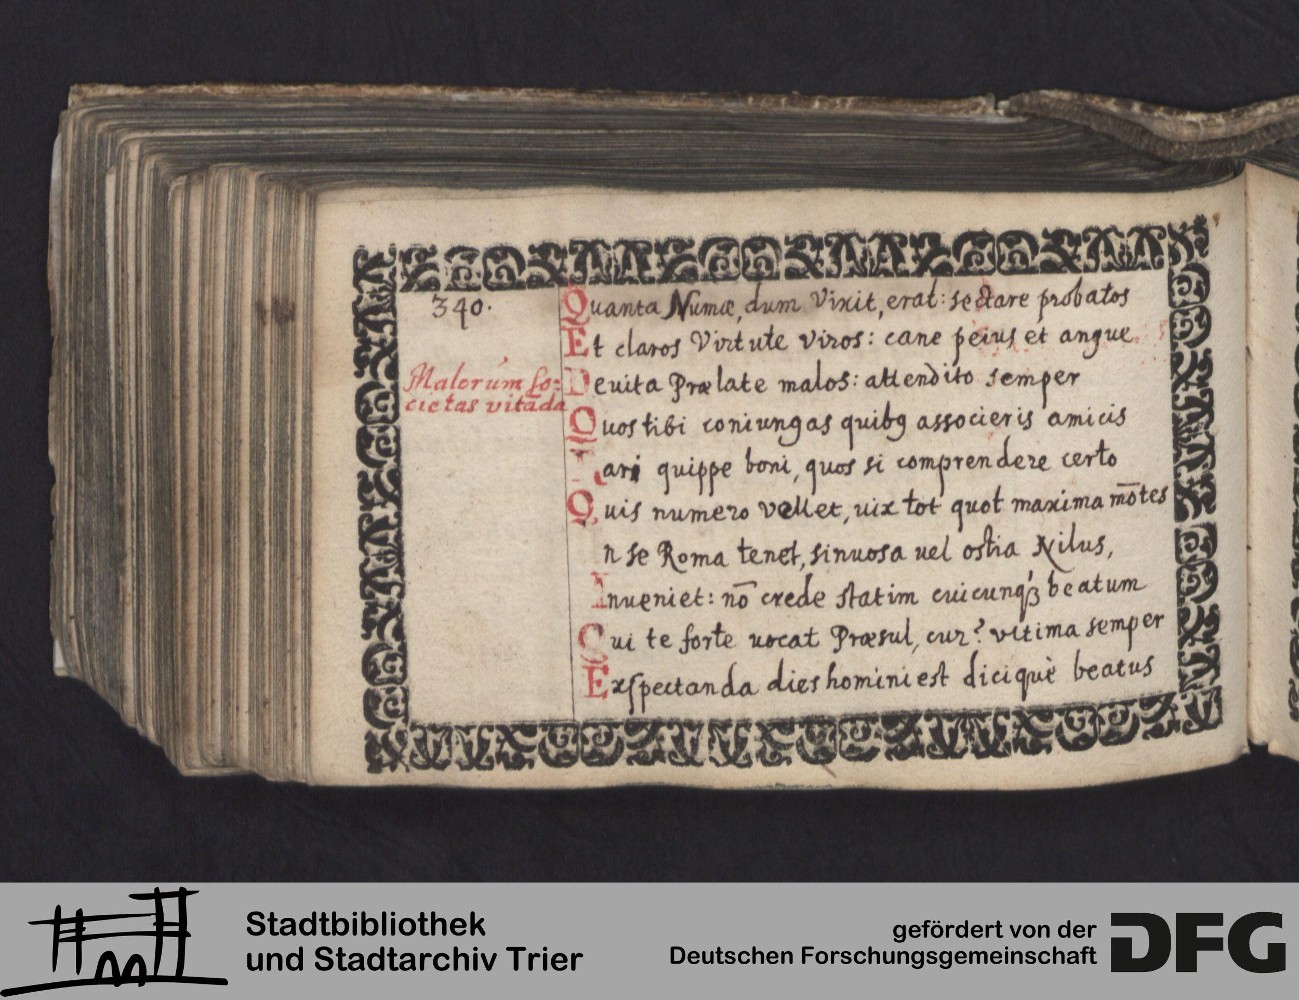 340.
Malorum so-
cietas vitāda
Quanta Numæ, dum Vixit, erat: sectare probatos
Et claros Virtute viros: cane peius et angue
Devita Prælate malos: attendito semper
Quos tibi coniungas quibꝫ associeris amicis
ari quippe boni, quos si comprendere certo
Quis numero vellet, vix tot quot maxima mōtes
n se Roma tenet, sinuosa vel ostia Nilus,
Inveniet: nō crede statim cuicunqꝫ beatum
Qui te forte vocat Præsul, cur? vltima semper
Exspectanda dies homini est diciquè beatus
Stadtbibliothek
und Stadtarchiv Trier
gefördert von der
Deutschen Forschungsgemeinschaft
DFG